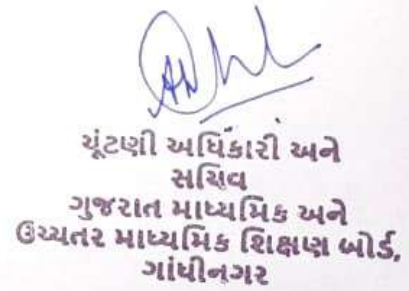 ચૂંટણી અધિકારી અને
સચિવ
ગુજરાત માધ્યમિક અને
ઉચ્ચતર માધ્યમિક શિક્ષણ બોર્ડ,
ગાંધીનગર